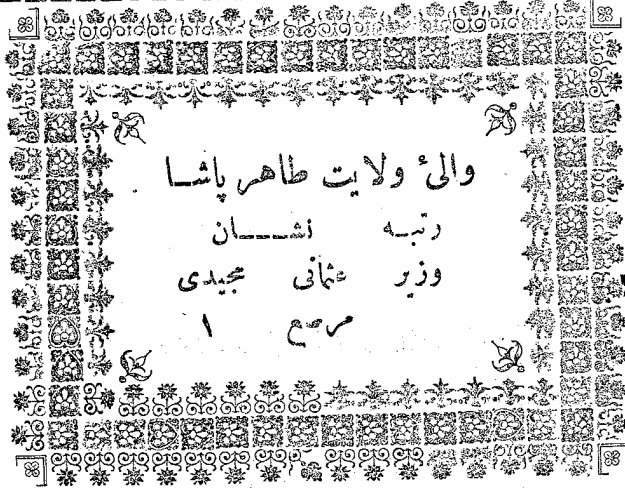 والیٔ ولایت طاهر پاشا
رتبه نشان
وزیر عثمانی مجیدی
مرصع ١